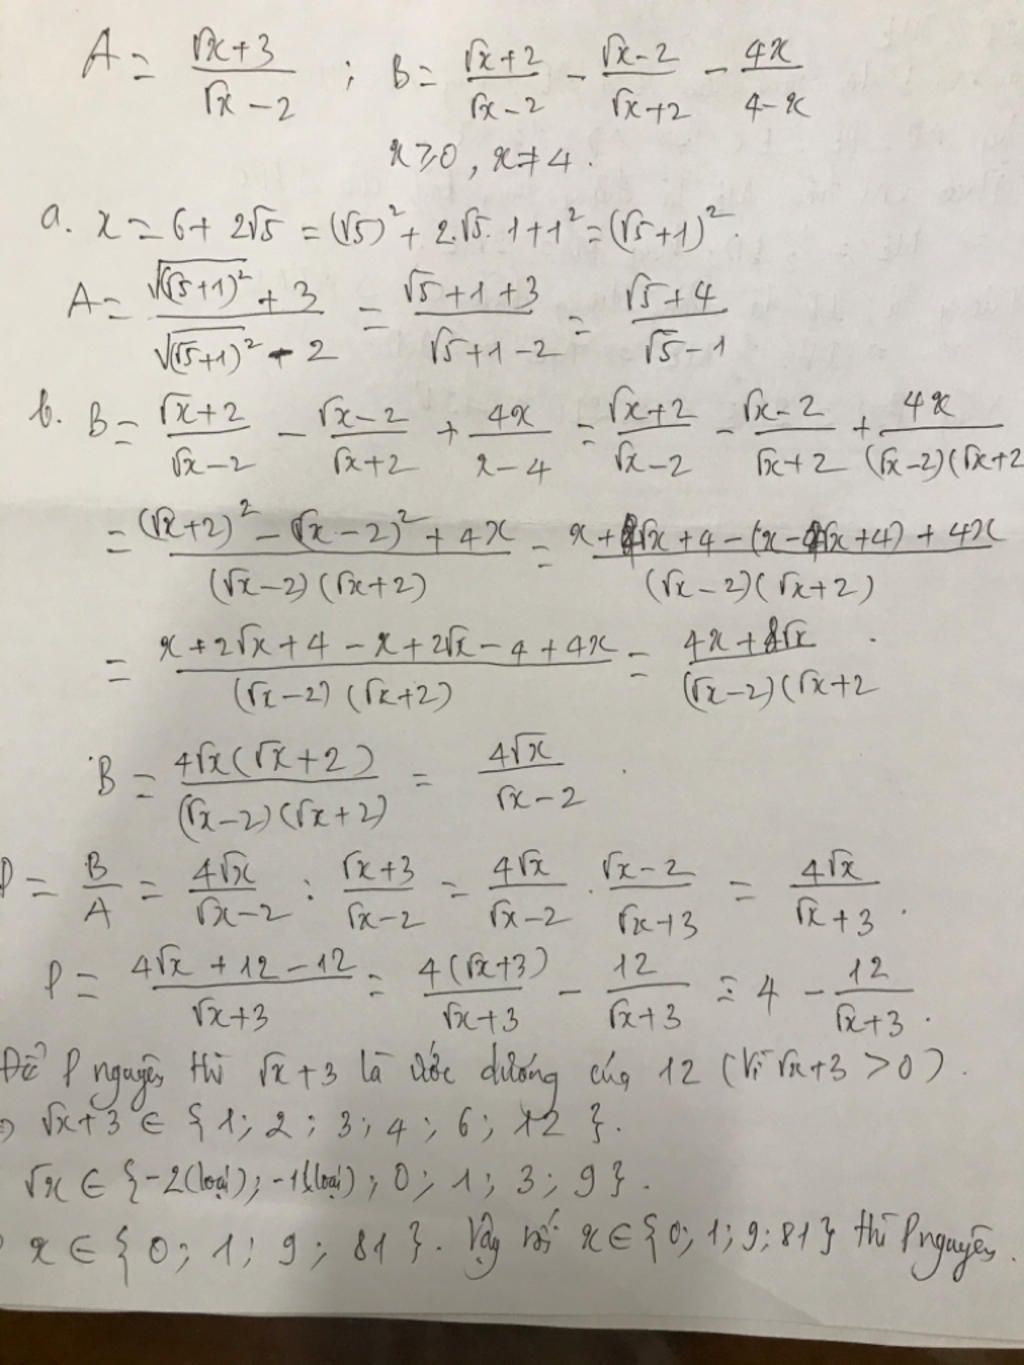 A = (√x+3)/(√x-2) ; B = (√x+2)/(√x-2) - (√x-2)/(√x+2) - 4x/(4-x)
x ≥ 0, x ≠ 4.
a. x = 6 + 2√5 = (√5)² + 2.√5.1 + 1² = (√5+1)².
A = (√(√5+1)² + 3)/(√(√5+1)² - 2) = (√5+1+3)/(√5+1-2) = (√5+4)/(√5-1)
b. B = (√x+2)/(√x-2) - (√x-2)/(√x+2) + 4x/(x-4) = (√x+2)/(√x-2) - (√x-2)/(√x+2) + 4x/((√x-2)(√x+2
= ((√x+2)² - (√x-2)² + 4x)/((√x-2)(√x+2)) = (x+4√x+4-(x-4√x+4)+4x)/((√x-2)(√x+2))
= (x+2√x+4-x+2√x-4+4x)/((√x-2)(√x+2)) = (4x+8√x)/((√x-2)(√x+2
B = (4√x(√x+2))/((√x-2)(√x+2)) = 4√x/(√x-2).
P = B/A = 4√x/(√x-2) : (√x+3)/(√x-2) = 4√x/(√x-2) . (√x-2)/(√x+3) = 4√x/(√x+3).
P = (4√x+12-12)/(√x+3) = 4(√x+3)/(√x+3) - 12/(√x+3) = 4 - 12/(√x+3).
Để P nguyên thì √x+3 là ước dương của 12 (Vì √x+3 > 0).
√x+3 ∈ {1; 2; 3; 4; 6; 12}.
√x ∈ {-2(loại); -1(loại); 0; 1; 3; 9}.
x ∈ {0; 1; 9; 81}. Vậy với x ∈ {0; 1; 9; 81} thì P nguyên.